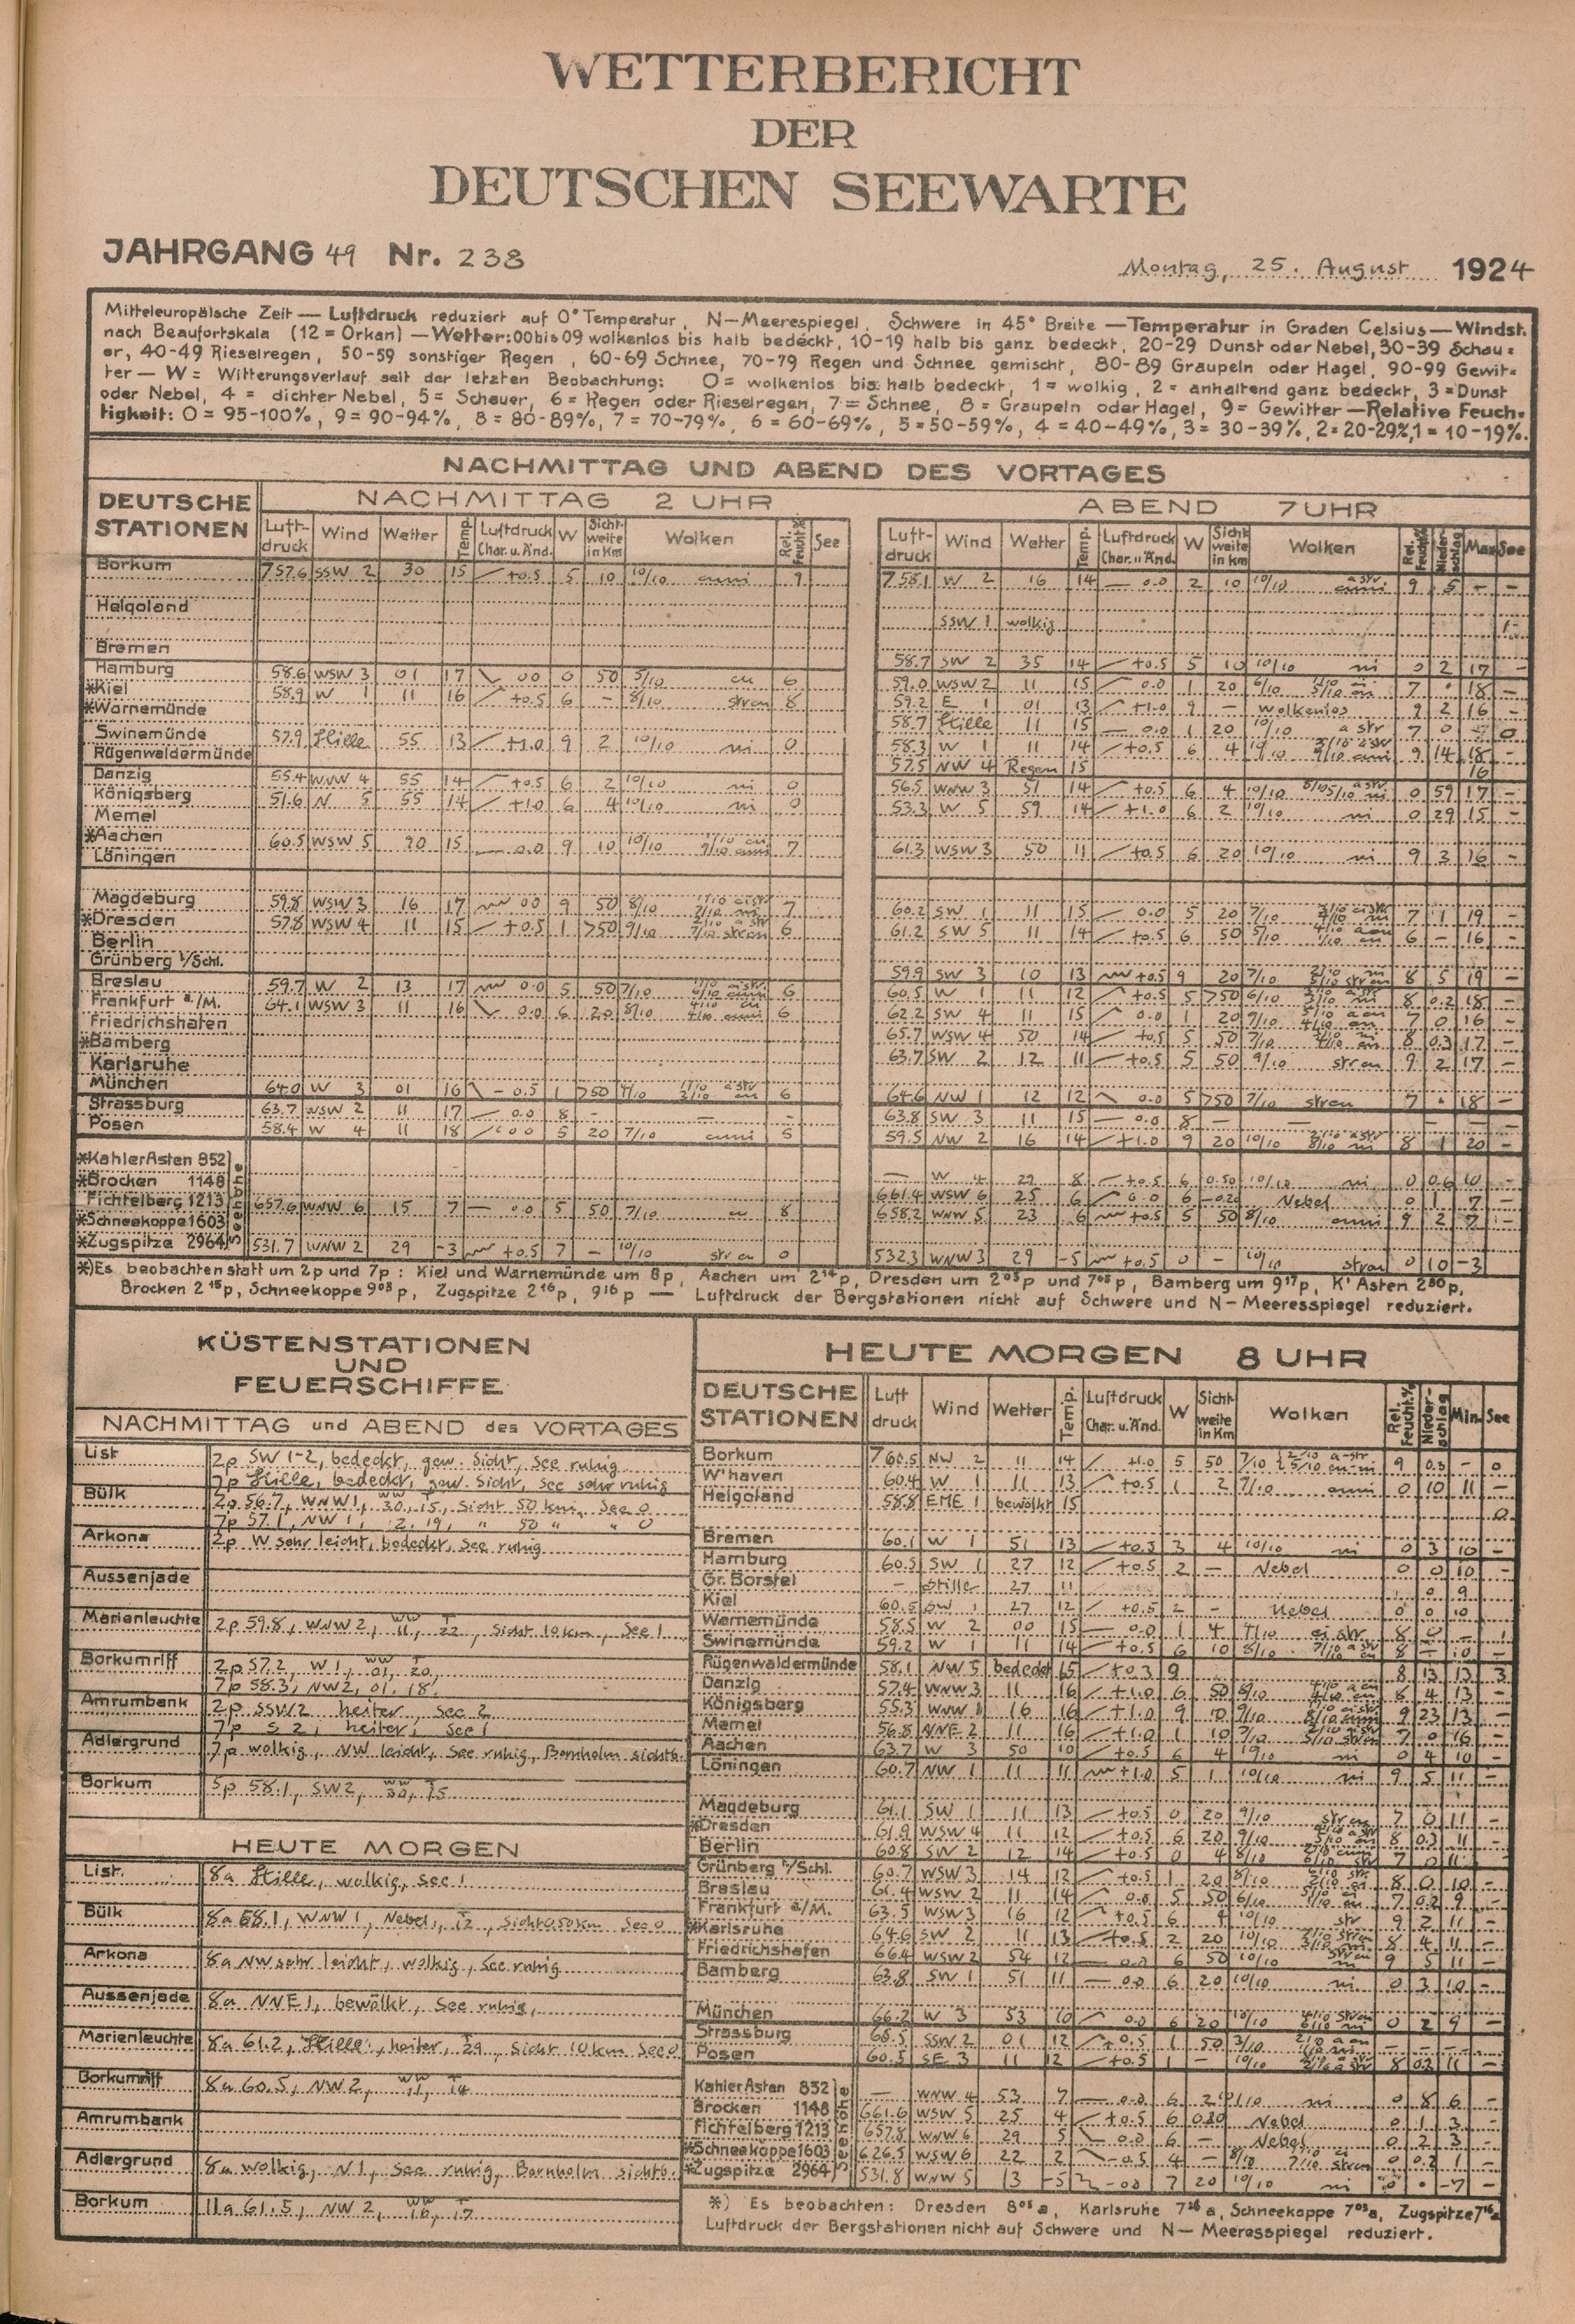 WETTERBERICHT
DER
DEUTSCHEN SEEWARTE
JAHRGANG 49 Nr. 238
Montag, 25. August 1924
Mitteleuropäische Zeit — Luftdruck reduziert auf 0° Temperatur, N—Meerespiegel, Schwere in 45° Breite — Temperatur in Graden Celsius — Windst.
nach Beaufortskala (12 = Orkan) — Wetter: 00 bis 09 wolkenlos bis halb bedeckt, 10-19 halb bis ganz bedeckt, 20-29 Dunst oder Nebel, 30-39 Schau=
er, 40-49 Rieselregen, 50-59 sonstiger Regen, 60-69 Schnee, 70-79 Regen und Schnee gemischt, 80-89 Graupeln oder Hagel, 90-99 Gewit=
ter — W = Witterungsverlauf seit der letzten Beobachtung: 0 = wolkenlos bis halb bedeckt, 1 = wolkig, 2 = anhaltend ganz bedeckt, 3 = Dunst
oder Nebel, 4 = dichter Nebel, 5 = Schauer, 6 = Regen oder Rieselregen, 7 = Schnee, 8 = Graupeln oder Hagel, 9 = Gewitter — Relative Feuch=
tigkeit: 0 = 95-100%, 9 = 90-94%, 8 = 80-89%, 7 = 70-79%, 6 = 60-69%, 5 = 50-59%, 4 = 40-49%, 3 = 30-39%, 2 = 20-29%, 1 = 10-19%.
NACHMITTAG UND ABEND DES VORTAGES
DEUTSCHE STATIONEN
NACHMITTAG 2 UHR
ABEND 7 UHR
Luft-druck Wind Wetter Temp. Luftdruck Char. u. Änd. W Sicht-weite in Km Wolken Rel. Feucht.% See
Luft-druck Wind Wetter Temp. Luftdruck Char. u. Änd. W Sicht-weite in Km Wolken Rel. Feucht.% Nieder-schlag Max See
Borkum 757.6 SSW 2 30 15 +0.5 5 10 10/10 cuni 9 758.1 W 2 16 14 0.0 2 10 10/10 a str cuni 9 5 – –
Helgoland SSW 1 wolkig 1
Bremen 58.7 SW 2 35 14 +0.5 5 10 10/10 ni 0 2 17 –
Hamburg 58.6 WSW 3 01 17 0.0 0 50 5/10 cu 6 59.0 WSW 2 11 15 0.0 1 20 6/10 7 . 18 –
*Kiel 58.9 W 1 11 16 +0.5 6 – 8/10 strcu 8 59.2 E 1 01 13 +1.0 9 – wolkenlos 9 2 16 –
*Warnemünde 58.7 Stille 11 15 0.0 1 20 10/10 a str 7 0 0
Swinemünde 57.9 Stille 55 13 +1.0 9 2 10/10 ni 0 58.3 W 1 11 14 +0.5 6 4 9 14 18 –
Rügenwaldermünde 57.5 NW 4 Regen 15 16
Danzig 55.4 WNW 4 55 14 +0.5 6 2 10/10 ni 0 56.5 WNW 3 51 14 +0.5 6 4 10/10 0 59 17 –
Königsberg 51.6 N 5 55 14 +1.0 6 4 10/10 ni 0 53.3 W 5 59 14 +1.0 6 2 10/10 ni 0 29 15 –
Memel
*Aachen 60.5 WSW 5 90 15 0.0 9 10 10/10 7 61.3 WSW 3 50 11 +0.5 6 20 10/10 ni 9 3 16 –
Löningen
Magdeburg 59.8 WSW 3 16 17 0.0 9 50 8/10 7 60.2 SW 1 11 15 0.0 5 20 7/10 7 1 19 –
*Dresden 57.8 WSW 4 11 15 +0.5 1 >50 9/10 6 61.2 SW 5 11 14 +0.5 6 50 5/10 6 – 16 –
Berlin
Grünberg i/Schl. 59.9 SW 3 10 13 +0.5 9 20 7/10 8 5 19 –
Breslau 59.7 W 2 13 17 0.0 5 50 7/10 6 60.5 W 1 11 12 +0.5 5 >50 6/10 8 0.2 18 –
Frankfurt a/M. 64.1 WSW 3 11 16 0.0 6 20 8/10 6 62.2 SW 4 11 15 0.0 1 20 9/10 7 0 16 –
Friedrichshafen 65.7 WSW 4 50 14 +0.5 5 50 7/10 8 0.3 17 –
*Bamberg 63.7 SW 2 12 11 +0.5 5 50 9/10 strcu 9 2 17 –
Karlsruhe
München 64.0 W 3 01 16 –0.5 1 >50 4/10 6 64.6 NW 1 12 12 0.0 5 >50 7/10 strcu 7 . 18 –
Strassburg 63.7 WSW 2 11 17 0.0 8 – – – 63.8 SW 3 11 15 0.0 8 – – – – – –
Posen 58.4 W 4 11 18 0.0 5 20 7/10 cuni 5 59.5 NW 2 16 14 +1.0 9 20 10/10 8 1 20 –
Seehöhe
*Kahler Asten 852 — W 4 29 8 +0.5 6 0.50 10/10 ni 0 0.6 10 –
*Brocken 1148 661.4 WSW 6 25 6 0.0 6 –0.20 Nebel 0 1 7 –
Fichtelberg 1213 657.6 WNW 6 15 7 0.0 5 50 7/10 cu 8 658.2 WNW 5 23 6 +0.5 5 50 8/10 cuni 9 2 7 –
*Schneekoppe 1603
*Zugspitze 2964 531.7 WNW 2 29 –3 +0.5 7 – 10/10 strcu 0 532.3 WNW 3 29 –5 +0.5 0 – 10/10 strcu 0 10 –3
*) Es beobachten statt um 2p und 7p: Kiel und Warnemünde um 8p, Aachen um 2¹⁴p, Dresden um 2⁰⁵p und 7⁰⁵p, Bamberg um 9¹⁷p, K' Asten 2³⁰p,
Brocken 2¹⁵p, Schneekoppe 9⁰³p, Zugspitze 2¹⁶p, 9¹⁶p — Luftdruck der Bergstationen nicht auf Schwere und N—Meeresspiegel reduziert.
KÜSTENSTATIONEN
UND
FEUERSCHIFFE
NACHMITTAG und ABEND des VORTAGES
List 2p SW 1-2, bedeckt, gew. Sicht, See ruhig
7p Stille, bedeckt, gew. Sicht, See sehr ruhig
Bülk 2p 56.7, WNW 1, WW 30, 15, Sicht 50 km, See 0
7p 57.1, NW 1, 12, 19, " 50 " " 0
Arkona 2p W sehr leicht, bedeckt, See ruhig
Aussenjade
Marienleuchte 2p 59.8, WNW 2, WW 11, T 22, Sicht 10 km, See 1
Borkumriff 2p 57.2, W 1, WW 01, T 20
7p 58.3, NW 2, 01, 18
Amrumbank 2p SSW 2 heiter, See 2
7p S 2, heiter, See 1
Adlergrund 7p wolkig, NW leicht, See ruhig, Bornholm sichtb.
Borkum 5p 58.1, SW 2, WW 30, T 15
HEUTE MORGEN
List. 8a Stille, wolkig, See 1
Bülk 8a 58.1, WNW 1, Nebel, T 12, Sicht 0.50 km See 0
Arkona 8a NW sehr leicht, wolkig, See ruhig
Aussenjade 8a NNE 1, bewölkt, See ruhig,
Marienleuchte 8a 61.2, Stille, heiter, T 29, Sicht 10 km See 0
Borkumriff 8a 60.5, NW 2, WW 11, T 14
Amrumbank
Adlergrund 8a wolkig, N 1, See ruhig, Bornholm sichtb.
Borkum 11a 61.5, NW 2, WW 16, T 17
HEUTE MORGEN 8 UHR
DEUTSCHE STATIONEN Luft druck Wind Wetter Temp. Luftdruck Char. u. Änd. W Sicht-weite in Km Wolken Rel. Feucht.% Nieder-schlag Min. See
Borkum 760.5 NW 2 11 14 +1.0 5 50 7/10 9 0.3 – 0
W'haven 60.4 W 1 11 13 +0.5 1 2 9/10 cuni 0 10 11 –
Helgoland 58.8 ENE 1 bewölkt 15 0
Bremen 60.1 W 1 51 13 +0.3 3 4 10/10 ni 0 3 10 –
Hamburg 60.5 SW 1 27 12 +0.5 2 – Nebel 0 0 10 –
Gr. Borstel – Stille 27 11 0 9
Kiel 60.5 SW 1 27 12 +0.5 2 – Nebel 0 0 10
Warnemünde 58.5 W 2 00 15 0.0 1 4 4/10 ci str 8 0 – 1
Swinemünde 59.2 W 1 11 14 +0.5 6 10 8/10 8 – 10 –
Rügenwaldermünde 58.1 NW 5 bedeckt 15 +0.3 9 8 13 13 3
Danzig 57.4 WNW 3 11 16 +1.0 6 50 8/10 8 4 13 –
Königsberg 55.3 WNW 16 16 +1.0 9 10 9/10 9 23 13 –
Memel 56.8 NNE 2 11 16 +1.0 1 10 7/10 7 0 16 –
Aachen 63.7 W 3 50 10 +0.5 6 4 10/10 ni 0 4 10 –
Löningen 60.7 NW 1 11 11 +1.0 5 1 10/10 ni 9 5 11 –
Magdeburg 61.1 SW 1 11 13 +0.5 0 20 9/10 strcu 7 0 11 –
*Dresden 61.9 WSW 4 11 12 +0.5 6 20 9/10 8 0.3 11 –
Berlin 60.8 SW 2 12 14 +0.5 0 4 8/10 7 0 11
Grünberg i/Schl. 60.7 WSW 3 14 12 +0.5 1 20 8/10 8 0 10 –
Breslau 61.4 WSW 2 11 14 0.0 5 50 6/10 7 0.2 9 –
Frankfurt a/M. 63.5 WSW 3 16 12 +0.5 6 4 10/10 str 9 2 11 –
*Karlsruhe 64.6 SW 2 11 13 +0.5 2 20 10/10 8 4 11 –
Friedrichshafen 66.4 WSW 2 54 12 0.0 6 50 10/10 9 5 11 –
Bamberg 63.8 SW 1 51 11 0.0 6 20 10/10 ni 0 3 10 –
München 66.2 W 3 53 10 0.0 6 20 10/10 0 2 9 –
Strassburg 68.5 SSW 2 01 12 +0.5 1 50 3/10 – – – –
Posen 60.5 SE 3 11 12 +0.5 1 – 10/10 8 0.2 11 –
Seehöhe
Kahler Asten 852 — WNW 4 53 7 0.0 6 2 10/10 ni 0 8 6 –
Brocken 1148 661.6 WSW 5 25 4 +0.5 6 Nebel 0 1 3 –
Fichtelberg 1213 657.8 WNW 6 29 5 0.0 6 – Nebel 0 2 3 –
*Schneekoppe 1603 626.5 WSW 6 22 2 –0.5 4 – 0 0.2 1 –
*Zugspitze 2964 531.8 WNW 5 13 –5 –0.0 7 20 10/10 ni 0 . –7 –
*) Es beobachten: Dresden 8⁰⁵a, Karlsruhe 7²⁶a, Schneekoppe 7⁰³a, Zugspitze 7¹⁶a
Luftdruck der Bergstationen nicht auf Schwere und N—Meeresspiegel reduziert.